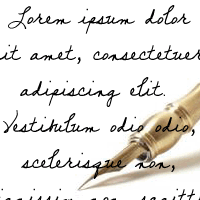 Lorem ipsum dolor
sit amet, consectetuer
adipiscing elit.
Vestibulum odio odio,
scelerisque non,